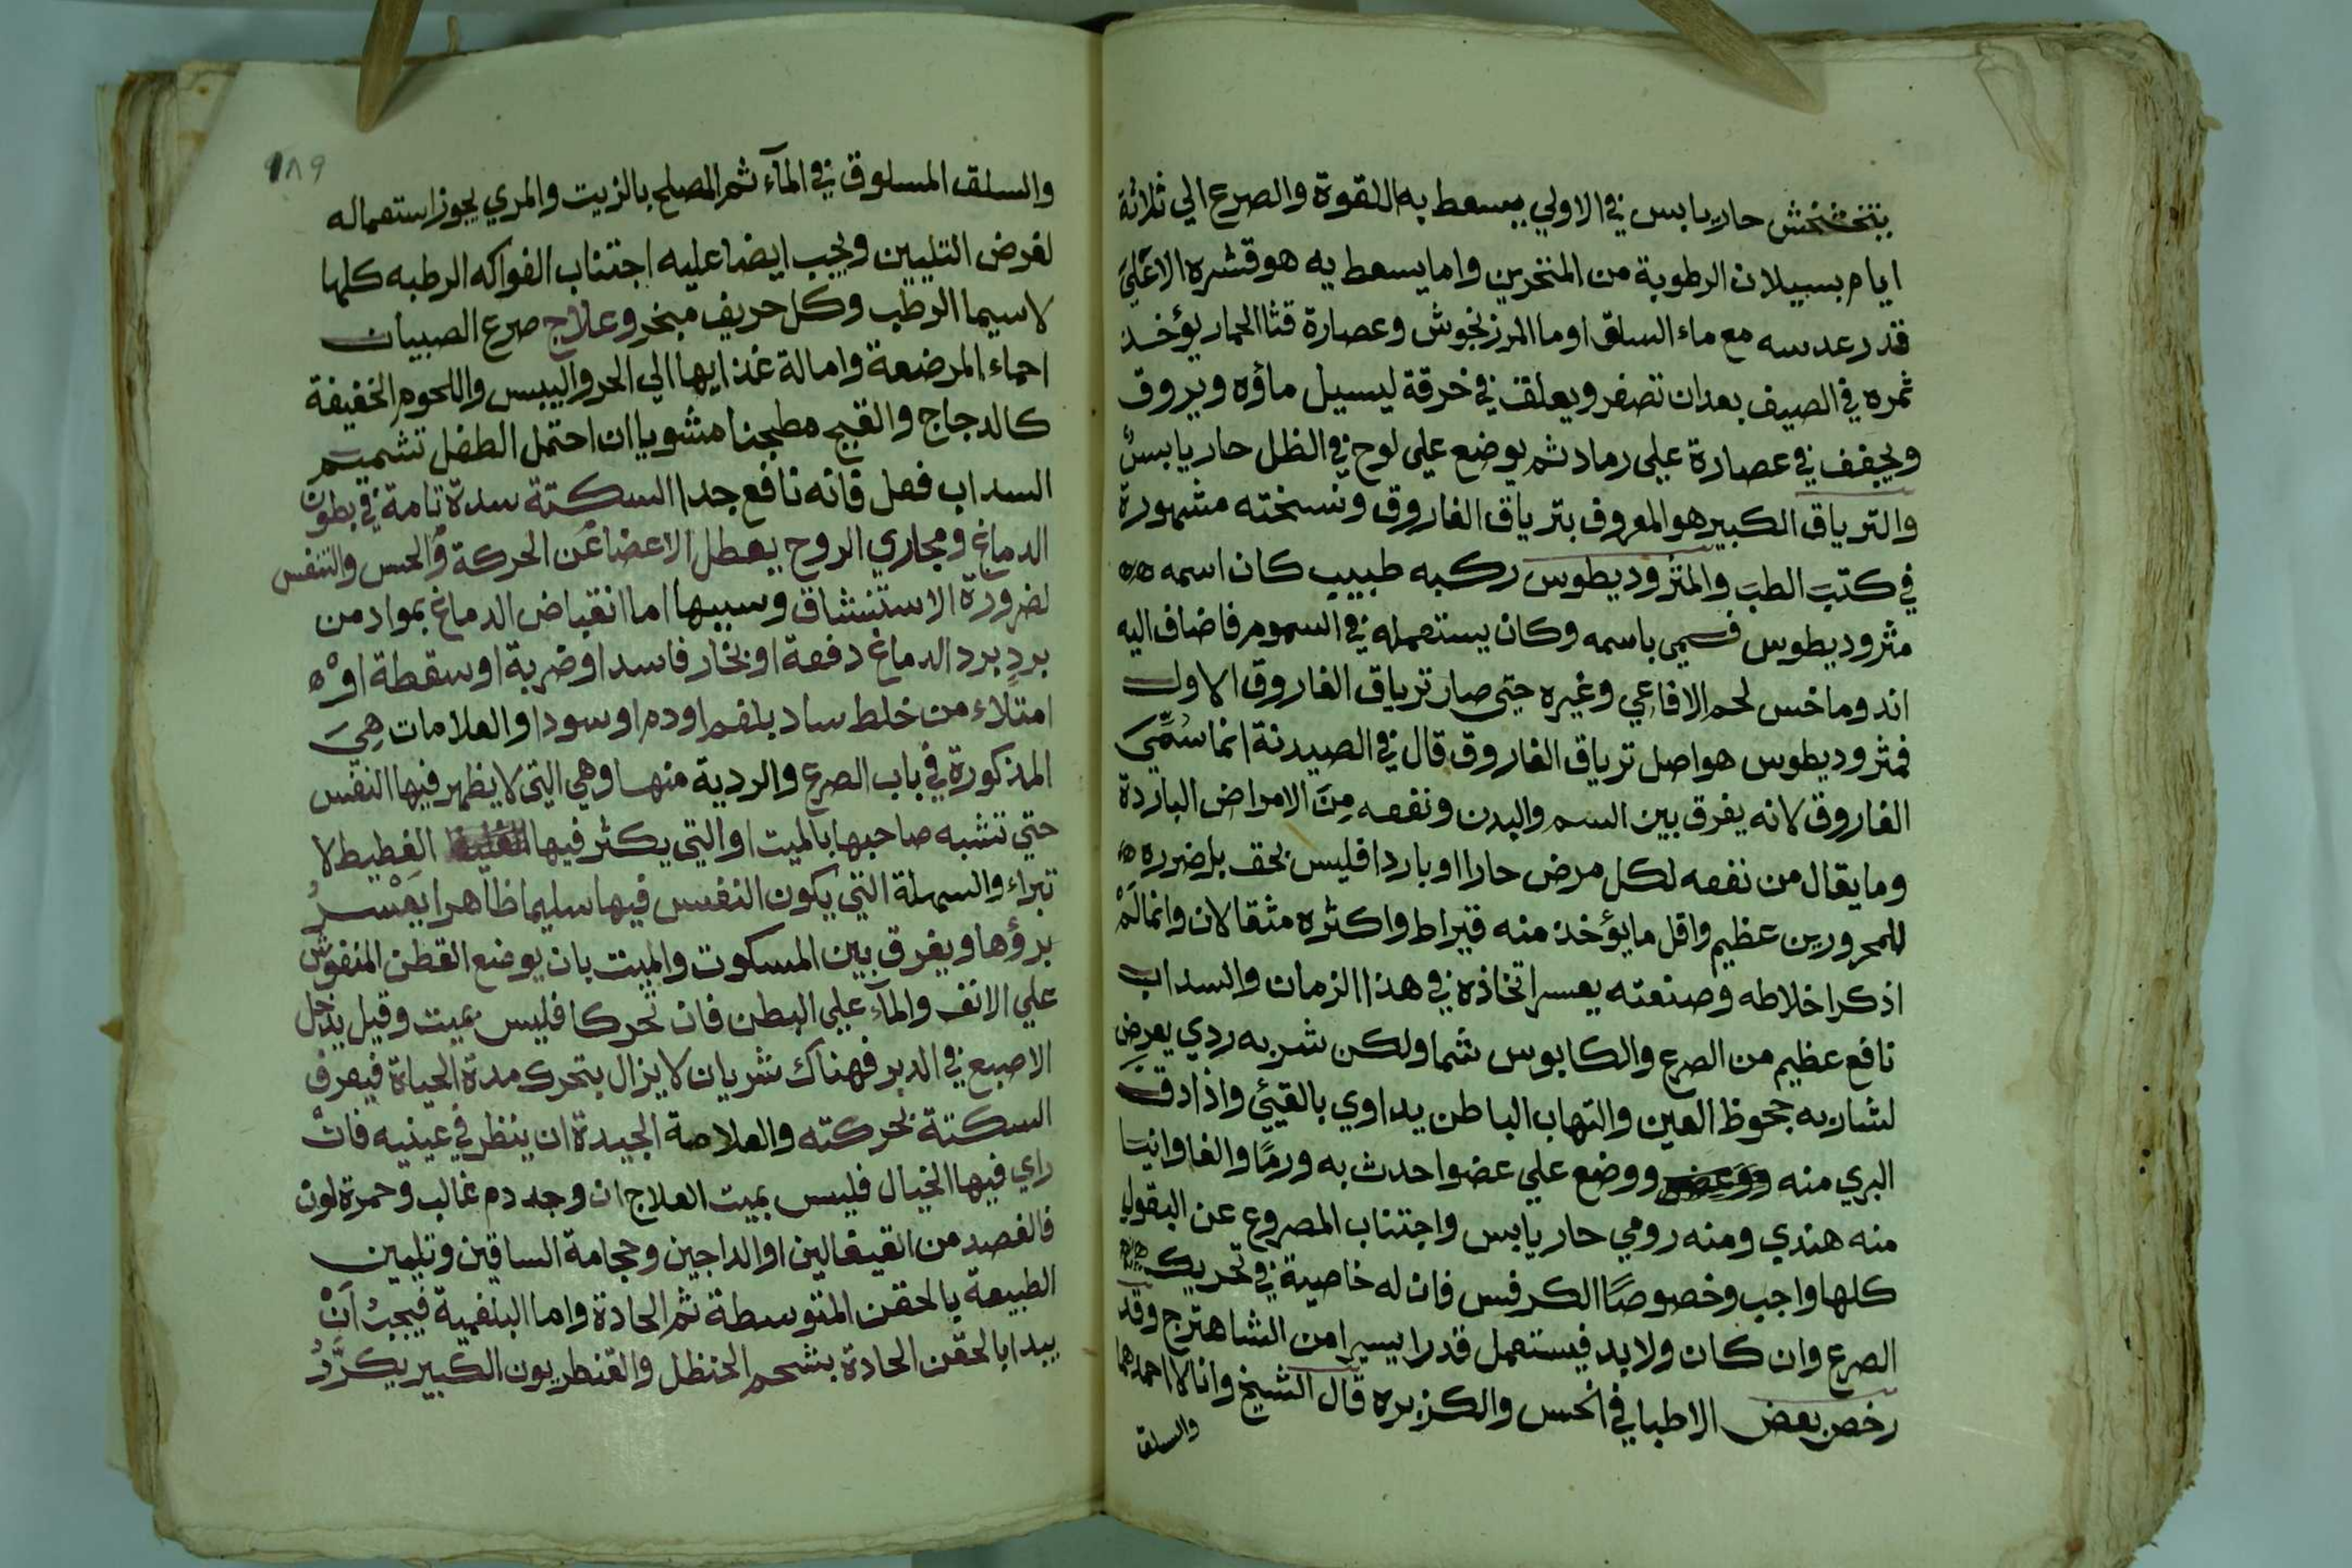 يتخشخش حار يابس في الاولي يسعط به اللقوة والصرع الي ثلاثة
ايام بسيلان الرطوبة من المنخرين واما يسعط به هو قشره الاعلي
قدر عدسه مع ماء السلق او ما المرزنجوش وعصارة قثا الحمار يؤخذ
ثمره في الصيف بعد ان تصفر ويعلق في خرقة ليسيل ماؤه ويروق
ويجفف في عصارة علي رماد ثم يوضع علي لوح في الظل حار يابس
والترياق الكبير هو المعروف بترياق الفاروق ونسخته مشهورة
في كتب الطب والمثروديطوس ركبه طبيب كان اسمه
مثروديطوس فسمي باسمه وكان يستعمله في السموم فاضاف اليه
اندوماخس لحم الافاعي وغيره حتي صار ترياق الفاروق الاول
فمثروديطوس هو اصل ترياق الفاروق قال في الصيدنة انما سُمِّيَ
الفاروق لانه يفرق بين السم والبدن ونفعه مِنَ الامراض الباردة
وما يقال من نفعه لكل مرض حارا او بارد افليس بحق بل ضرره
للمحرورين عظيم واقل ما يؤخذ منه قيراط واكثره مثقالان وانما لَمْ
اذكر اخلاطه وصنعته يعسر اتخاذه في هذا الزمان والسداب
نافع عظيم من الصرع والكابوس شما ولكن شربه ردي يعرض
لشاربه جحوظ العين والتهاب الباطن يداوي بالقيئ واذا دق
البري منه ووضع علي عضوا حدث به ورمًا والفاوانيا
منه هندي ومنه رومي حار يابس واجتناب المصروع عن البقول
كلها واجب وخصوصًا الكرفس فان له خاصية في تحريك
الصرع وان كان ولا بد فيستعمل قدرا يسيرا من الشاهترج وقد
رخص بعض الاطبا في الخس والكزبره قال الشيخ وانا لا احمدهما
والسلق
٩٨٩
والسلق المسلوق في المآء ثم المصلح بالزيت والمري يجوز استعماله
لغرض التليين ويجب ايضا عليه اجتناب الفواكه الرطبه كلها
لاسيما الرطب وكل حريف مبخر وعلاج صرع الصبيان
احماء المرضعة وامالة غذايها الي الحر واليبس واللحوم الخفيفة
كالدجاج والقبج مطجنا مشويا ان احتمل الطفل تشميم
السداب فعل فانه نافع جدا السكتة سدة تامة في بطون
الدماغ ومجاري الروح يعطل الاعضا عن الحركة والحس والتنفس
لضرورة الاستنشاق وسببها اما انقباض الدماغ بمواد من
بردٍ برد الدماغ دفعة او بخار فاسد او ضربة او سقطة او
امتلاء من خلط ساد بلغم او دم او سودا والعلامات هِيَ
المذكورة في باب الصرع والردية منها وهي التي لا يظهر فيها النفس
حتي تشبه صاحبها بالميت او التي يكثر فيها الغطيط لا
تبراء والسهلة التي يكون النفس فيها سليما ظاهرا يعسر
برؤها ويفرق بين المسكوت والميت بان يوضع القطن المنفوش
علي الانف والمآء علي البطن فان تحركا فليس بميت وقيل يدخل
الاصبع في الدبر فهناك شريان لا يزال يتحرك مدة الحياة فيعرف
السكتة بحركته والعلاصة الجيدة ان ينظر في عينيه فان
راي فيها الخيال فليس بميت العلاج ان وجد دم غالب وحمرة لون
فالفصد من القيفالين او الداجين وحجامة الساقين وتليين
الطبيعة بالحقن المتوسطة ثم الحادة واما البلغمية فيجب اَنْ
يبدا بالحقن الحادة بشحم الحنظل والقنطريون الكبير يكرَّرُ